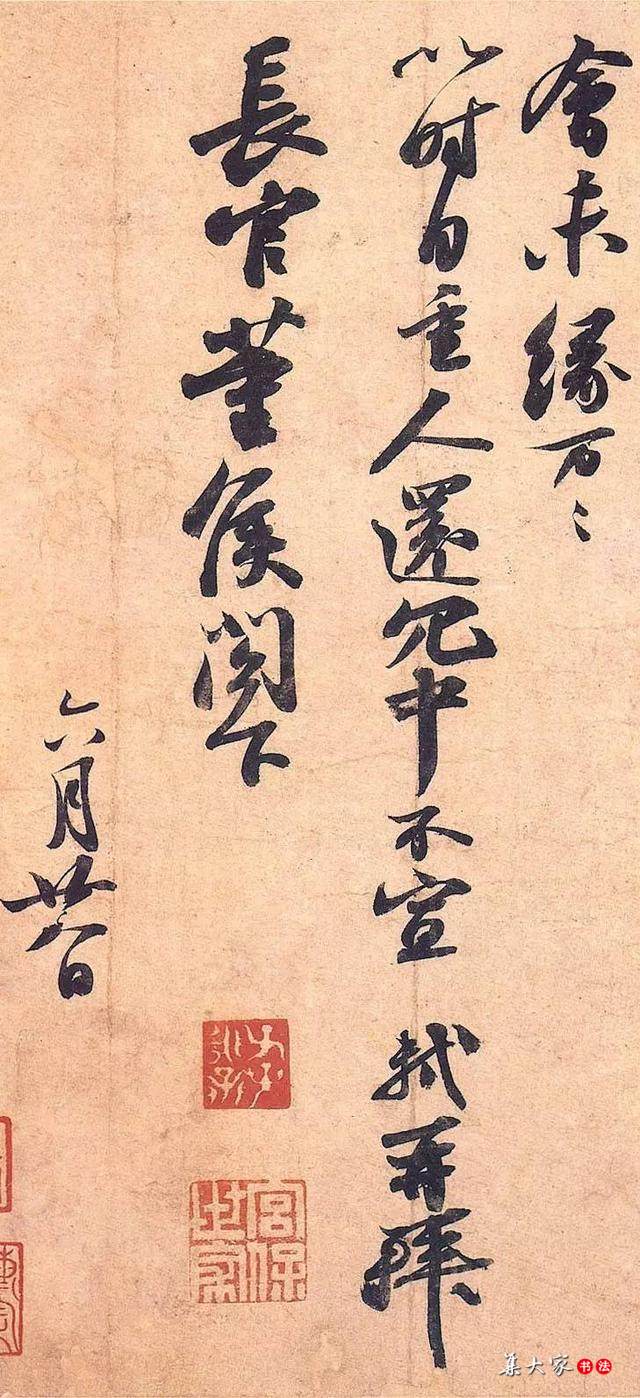 會未緣万〻
以时自重人還冗中不宣 軾再拜
長官董侯閣下
六月廿八日
宮保世家
集大家书法